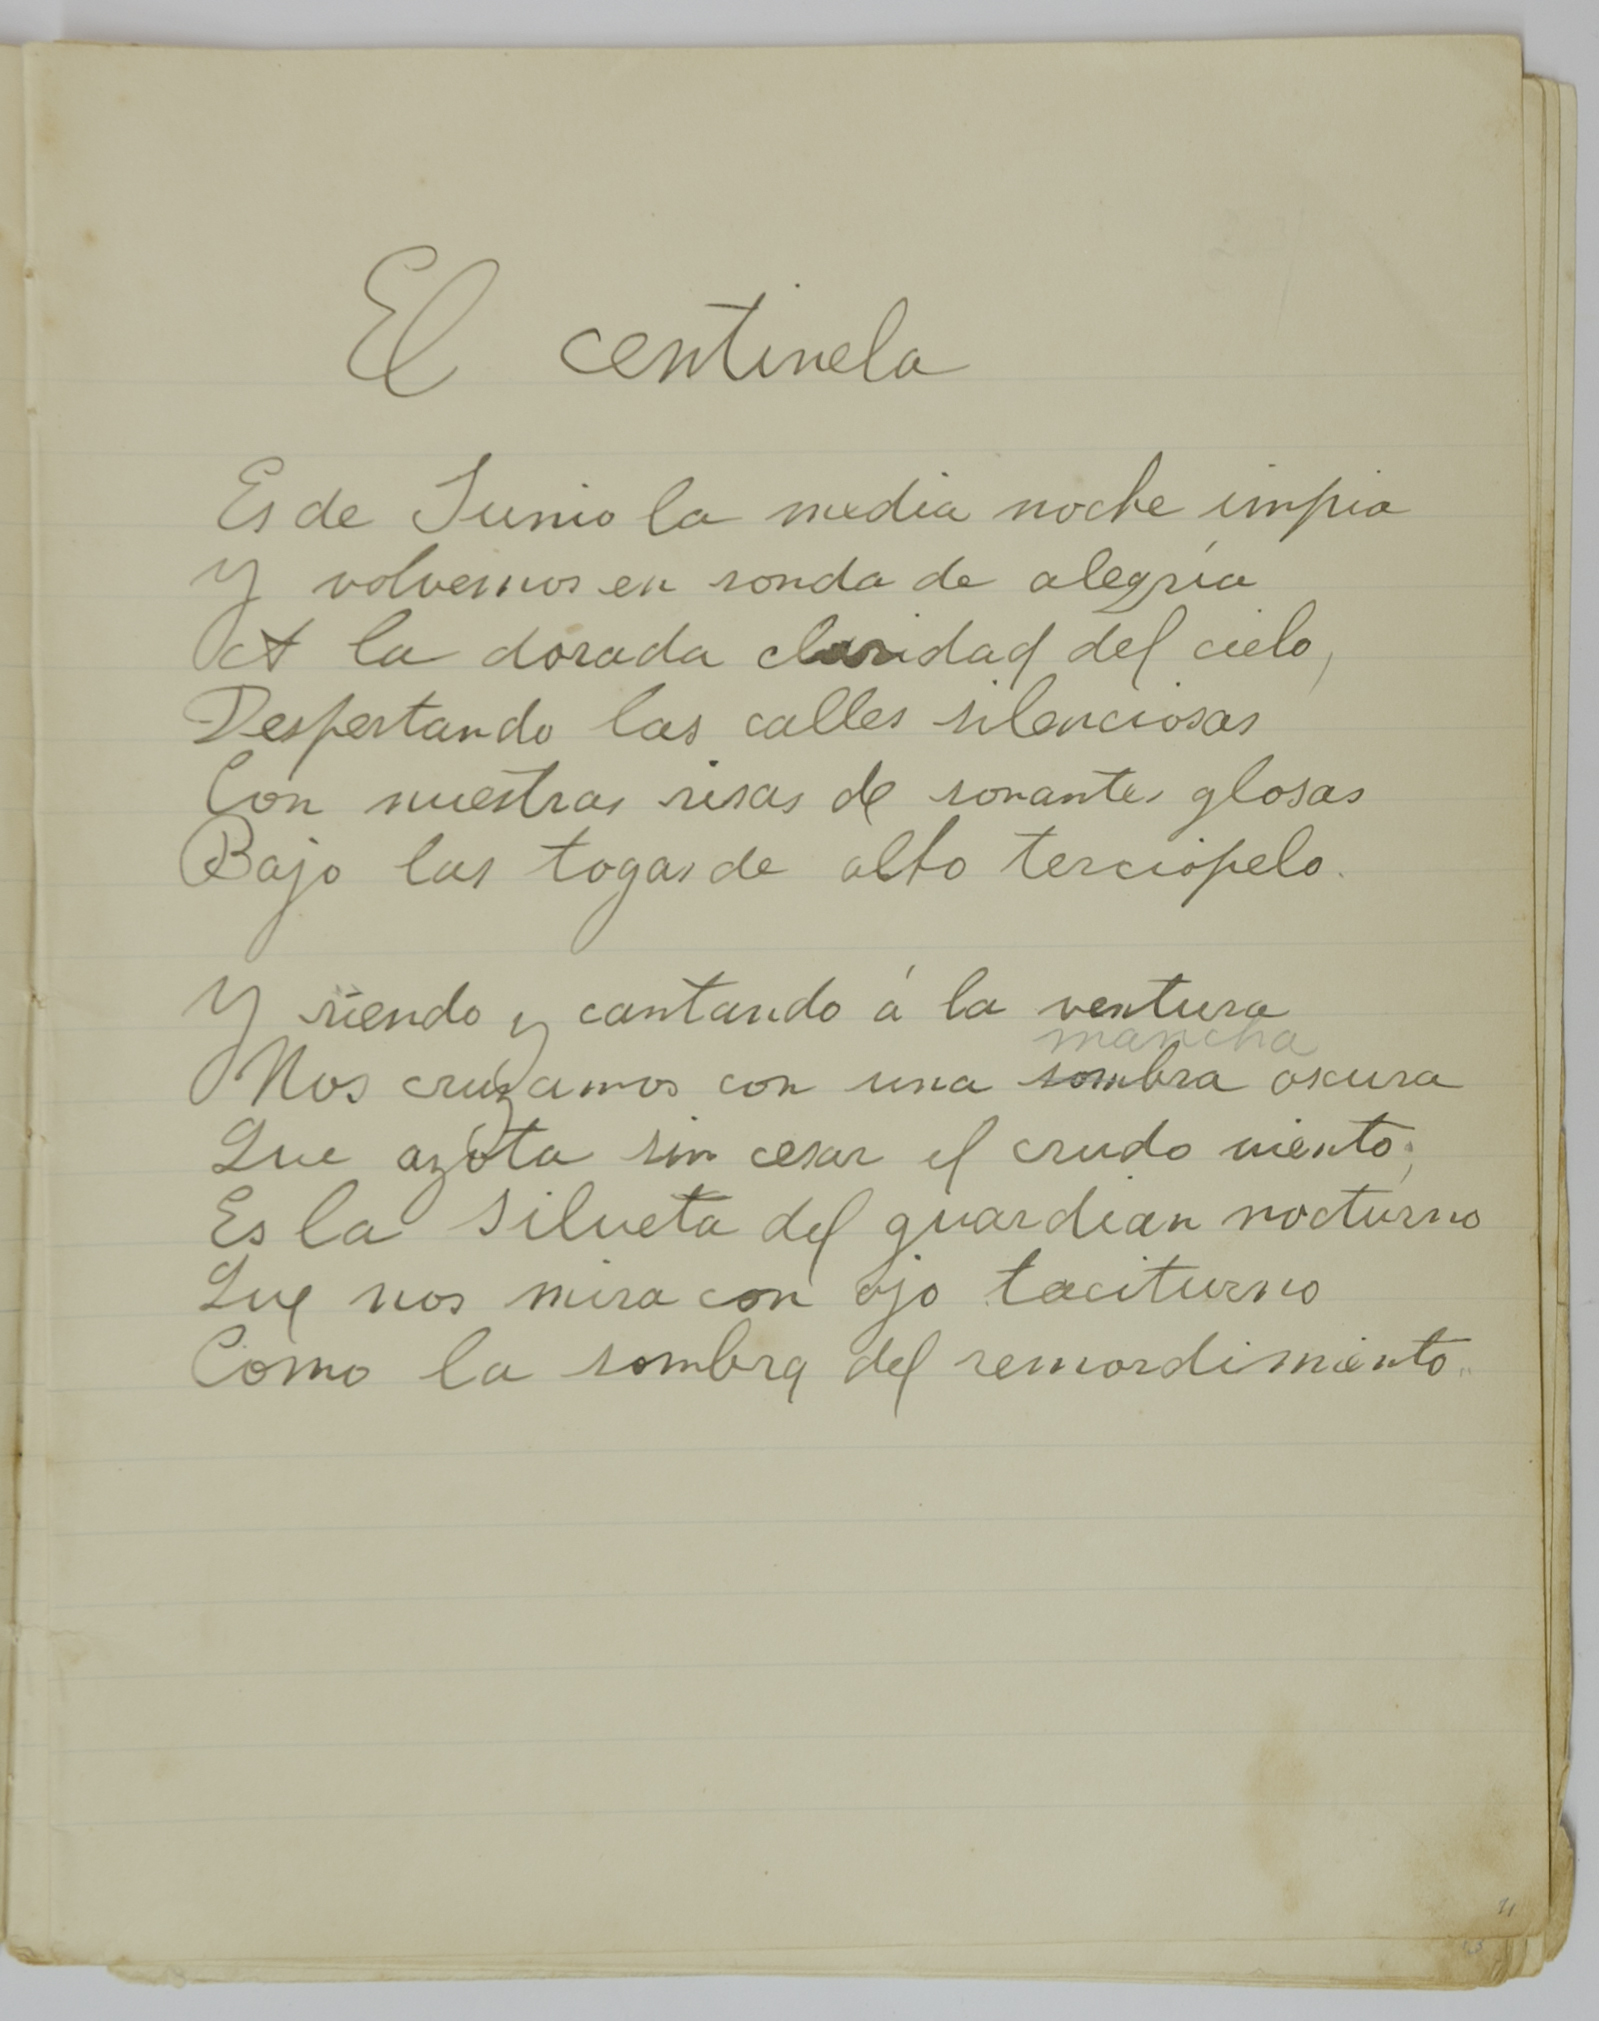 El centinela
Es de Junio la media noche impia
Y volvemos en ronda de alegría
A la dorada claridad del cielo,
Despertando las calles silenciosas
Con nuestras risas de sonantes glosas
Bajo las togas de alto terciopelo.
Y riendo y cantando á la ventura
mancha
Nos cruzamos con una sombra oscura
Que azota sin cesar el crudo viento;
Es la silueta del guardian nocturno
Que nos mira con ojo taciturno
Como la sombra del remordimiento..